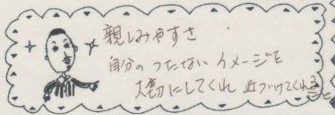 親しみやすさ
自分のつたないイメージを
大切にしてくれ 近づけてくれること